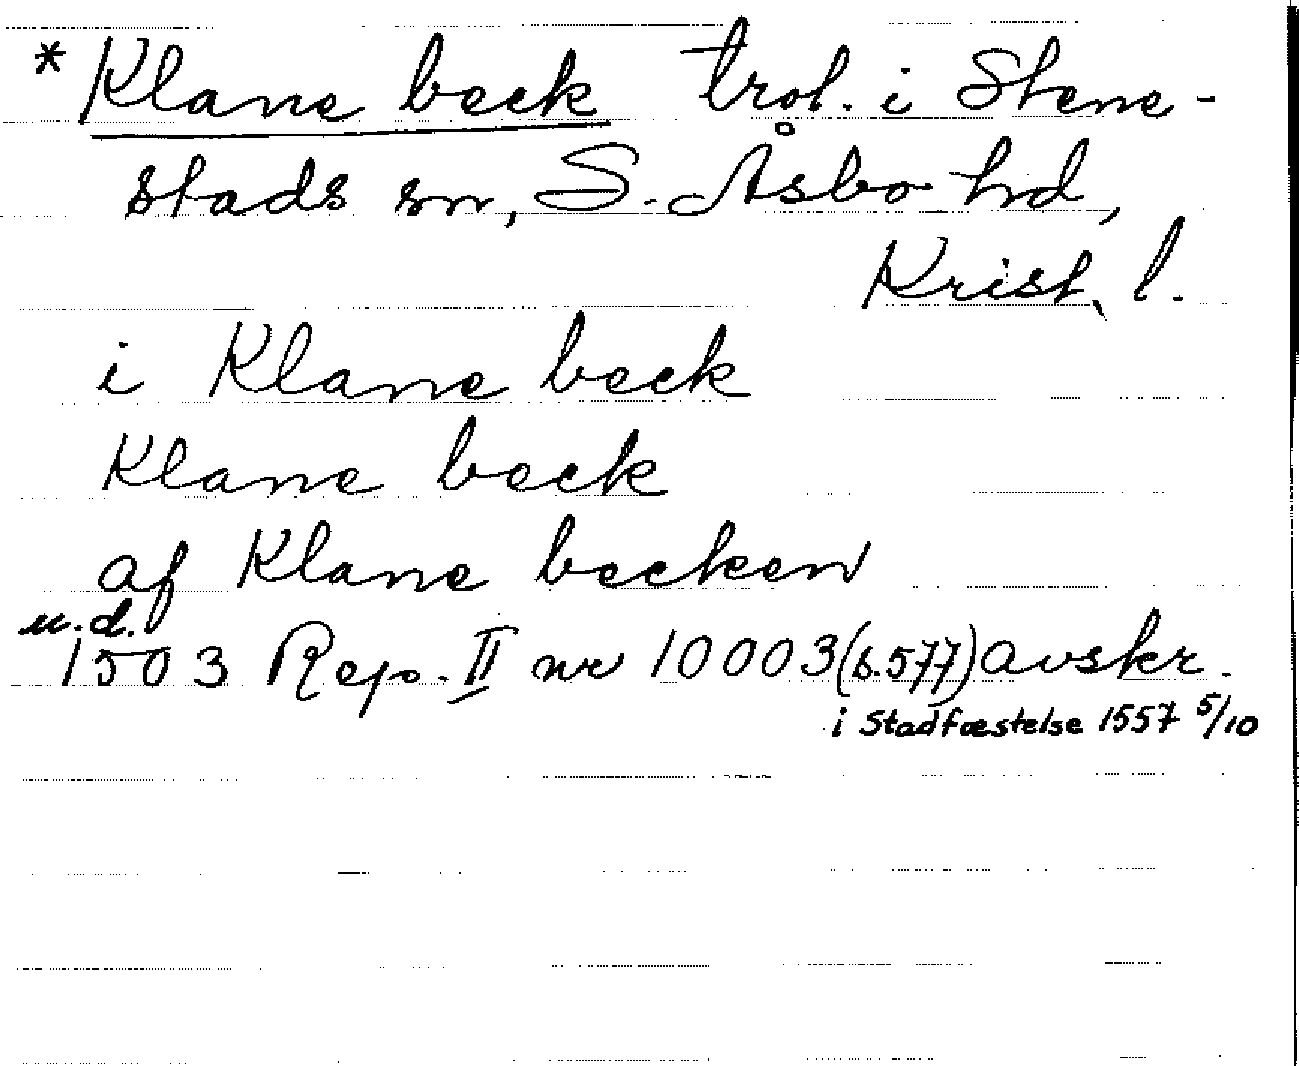 * Klane beck trol. i Stene-
stads sn, S. Åsbo hd,
Krist. l.
i Klane beck
Klane beck
af Klane becken
u.d.
1503 Rep. II nr 10003 (s. 577) avskr.
i Stadfæstelse 1557 5/10